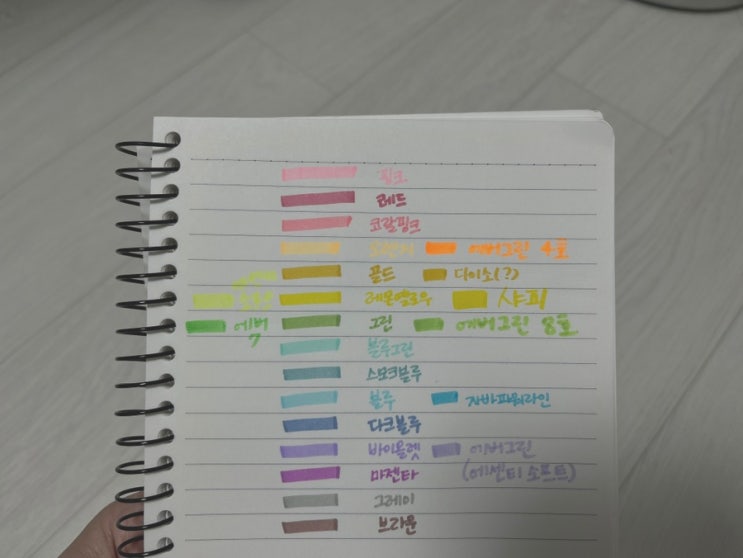 핑크
레드
코랄핑크
오렌지 에버그린 4호
골드 다이소(?)
레몬옐로우 샤피
에버 7 그린 에버그린 8호
블루그린
스모크블루
블루 자바파워라인
다크블루
바이올렛 에버그린
마젠타 (에센티 소프트)
그레이
브라운